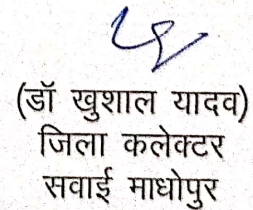 (डॉ खुशाल यादव)
जिला कलेक्टर
सवाई माधोपुर